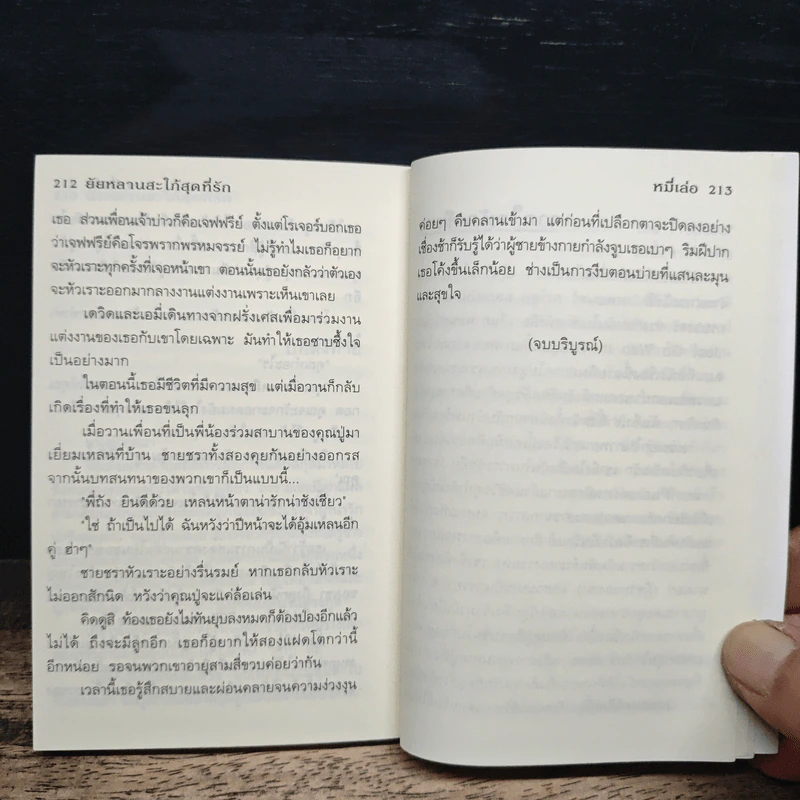 212 ยัยหลานสะใภ้สุดที่รัก
เธอ ส่วนเพื่อนเจ้าบ่าวก็คือเจฟฟรีย์ ตั้งแต่โรเจอร์บอกเธอ
ว่าเจฟฟรีย์คือโจรพรากพรหมจรรย์ ไม่รู้ทำไมเธอก็อยาก
จะหัวเราะทุกครั้งที่เจอหน้าเขา ตอนนั้นเธอยังกลัวว่าตัวเอง
จะหัวเราะออกมากลางงานแต่งงานเพราะเห็นเขาเลย
เดวิดและเอมี่เดินทางจากฝรั่งเศสเพื่อมาร่วมงาน
แต่งงานของเธอกับเขาโดยเฉพาะ มันทำให้เธอซาบซึ้งใจ
เป็นอย่างมาก
ในตอนนี้เธอมีชีวิตที่มีความสุข แต่เมื่อวานก็กลับ
เกิดเรื่องที่ทำให้เธอขนลุก
เมื่อวานเพื่อนที่เป็นพี่น้องร่วมสาบานของคุณปู่มา
เยี่ยมเหลนที่บ้าน ชายชราทั้งสองคุยกันอย่างออกรส
จากนั้นบทสนทนาของพวกเขาก็เป็นแบบนี้...
"พี่ถัง ยินดีด้วย เหลนหน้าตาน่ารักน่าชังเชียว"
"ใช่ ถ้าเป็นไปได้ ฉันหวังว่าปีหน้าจะได้อุ้มเหลนอีก
คู่ ฮ่าๆ"
ชายชราหัวเราะอย่างรื่นรมย์ หากเธอกลับหัวเราะ
ไม่ออกสักนิด หวังว่าคุณปู่จะแค่ล้อเล่น
คิดดูสิ ท้องเธอยังไม่ทันยุบลงหมดก็ต้องป่องอีกแล้ว
ไม่ได้ ถึงจะมีลูกอีก เธอก็อยากให้สองแฝดโตกว่านี้
อีกหน่อย รอจนพวกเขาอายุสามสี่ขวบค่อยว่ากัน
เวลานี้เธอรู้สึกสบายและผ่อนคลายจนความง่วงงุน
หมี่เล่อ 213
ค่อยๆ คืบคลานเข้ามา แต่ก่อนที่เปลือกตาจะปิดลงอย่าง
เชื่องช้าก็รับรู้ได้ว่าผู้ชายข้างกายกำลังจูบเธอเบาๆ ริมฝีปาก
เธอโค้งขึ้นเล็กน้อย ช่างเป็นการงีบตอนบ่ายที่แสนละมุน
และสุขใจ
(จบบริบูรณ์)